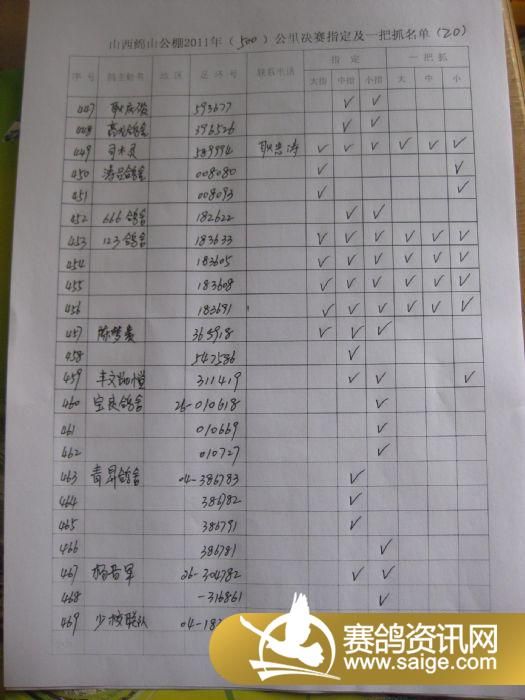 山西绵山公棚2011年(500)公里决赛指定及一把抓名单(20)
序号 鸽主姓名 地区 足环号 联系电话 指定 一把抓
大指 中指 小指 大 中 小
447 593677 ✓ ✓
448 鸽舍 396526 ✓ ✓
449 589994 ✓ ✓ ✓ ✓ ✓ ✓
450 鸽舍 008080 ✓ ✓
451 008093 ✓ ✓
452 666鸽舍 182622 ✓ ✓
453 123鸽舍 183633 ✓ ✓ ✓ ✓ ✓ ✓
454 183605 ✓ ✓ ✓ ✓ ✓ ✓
455 183608 ✓ ✓ ✓ ✓ ✓ ✓
456 183691 ✓ ✓ ✓ ✓ ✓ ✓
457 365918 ✓ ✓ ✓
458 547586 ✓
459 311419 ✓ ✓ ✓
460 宝良鸽舍 26-010618 ✓
461 010669 ✓
462 010727 ✓
463 青昇鸽舍 04-386783 ✓
464 386782 ✓
465 386791 ✓
466 386781 ✓
467 杨晋军 26-304782 ✓ ✓
468 -316861 ✓
469 少校联队
赛鸽资讯网
www.saige.com